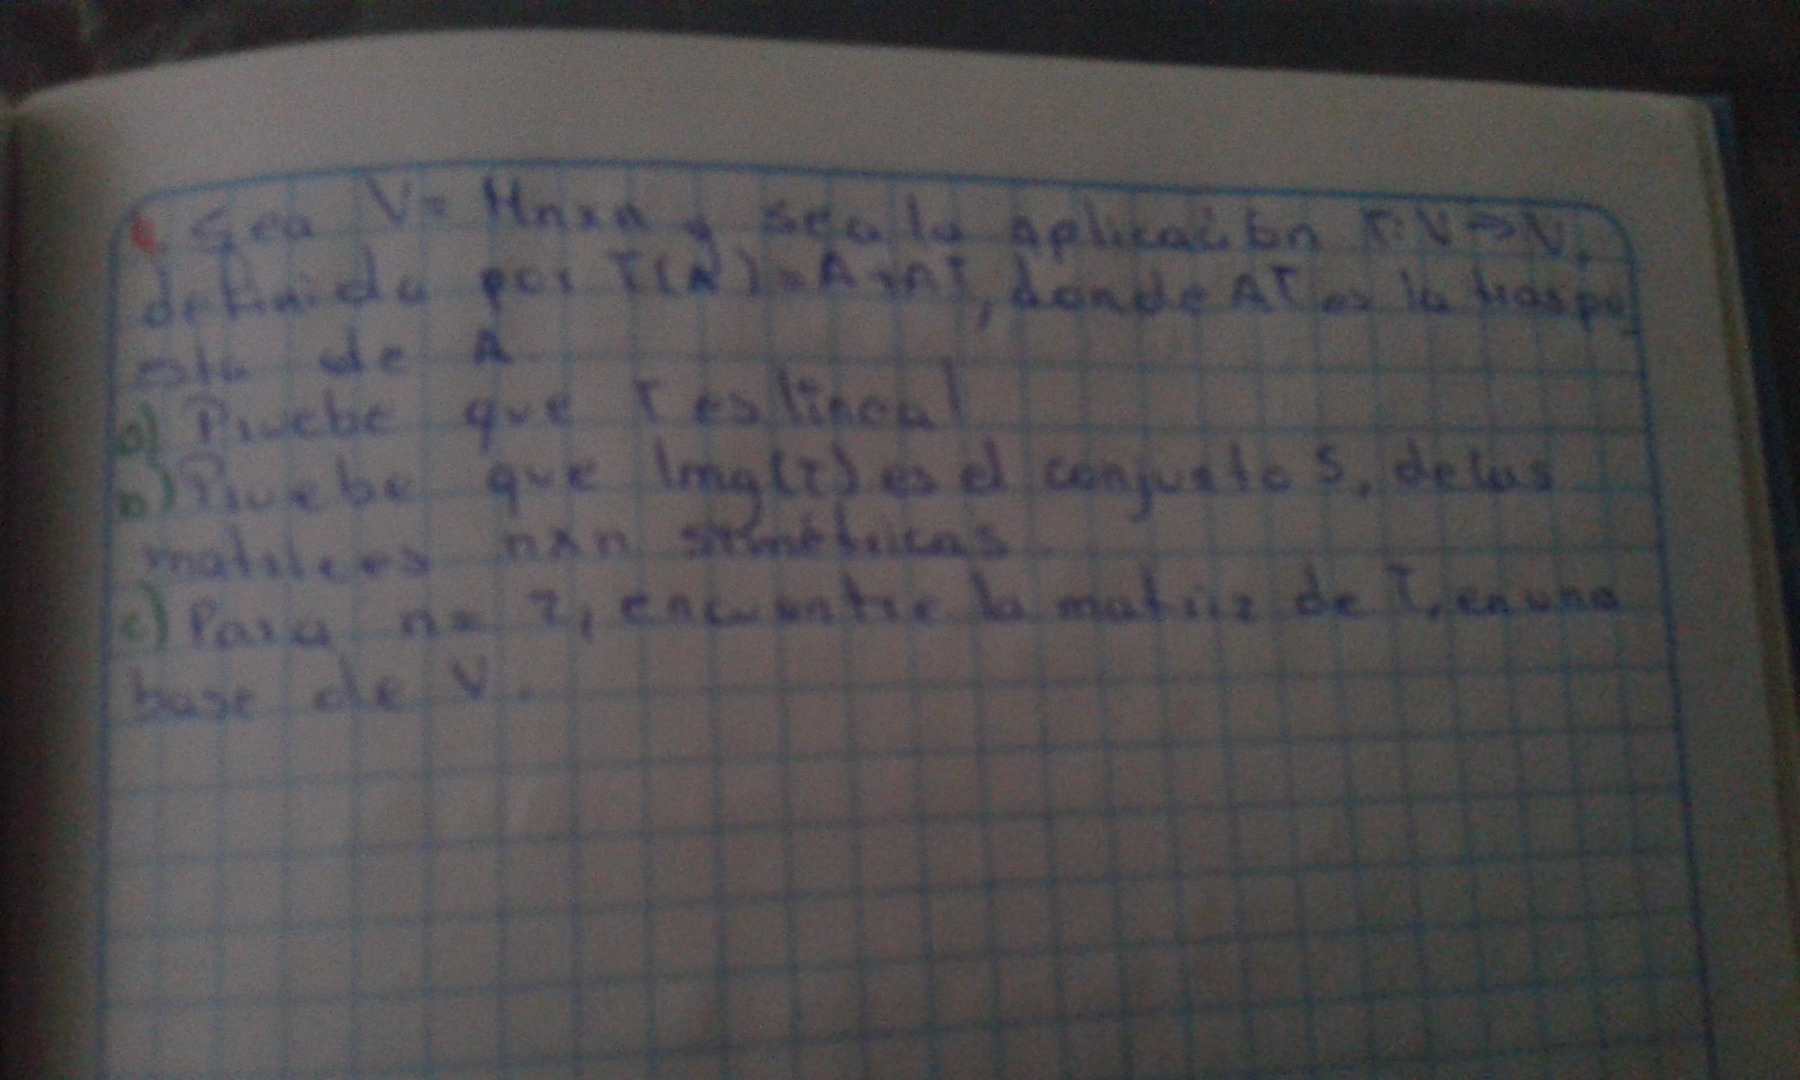 Sea V= Mnxn y sea la aplicación T:V→V,
definida por T(A)=A+AT, donde AT es la traspu_
esta de A
a) Pruebe que T es lineal
b) Pruebe que Img(T) es el conjunto S, de las
matrices nxn simétricas
c) Para n= 2, encuentre la matriz de T, en una
base de V.